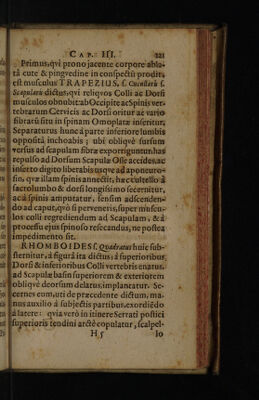 CAP. III. 121
Primus, qvi prono jacente corpore abla-
tâ cute & pingvedine in conspectū prodit,
est musculus TRAPEZIUS, s. Cucullaris s.
Scapularis dictus, qvi reliqvos Colli ac Dorsi
musculos obnubit: ab Occipite ac Spinis ver-
tebrarum Cervicis ac Dorsi oritur ac vario
fibrarū situ in spinam Omoplatæ inseritur.
Separaturus hunc à parte inferiore lumbis
oppositâ inchoabis; ubi obliqvè sursum
versus ad scapulam fibræ exporriguntur: has
repulso ad Dorsum Scapulæ Osse accedes, ac
inserto digito liberabis usque ad aponeuro-
sin, qvæ illam spinis annectit, hæc cultello à
sacrolumbo & dorsi longissimo secernitur,
ac à spinis amputatur, sensim adscenden-
do ad caput, qvò si perveneris, super muscu-
los colli regrediendum ad Scapulam, & à
processu ejus spinoso resecandus, ne postea
impedimento sit.
RHOMBOIDES s. Quadratus huic sub-
sternitur, à figurâ ita dictus: à superioribus
Dorsi & inferioribus Colli vertebris enatus,
ad Scapulæ basin superiorem & exteriorem
obliqvè deorsum delatus, implantatur. Se-
cernes eum, uti de præcedente dictum, ma-
nus auxilio à subjectis partibus, exordiēdo
à latere: qvia verò in itinere Serrati postici
superioris tendini arctè copulatur, scalpel-
H 5 lo